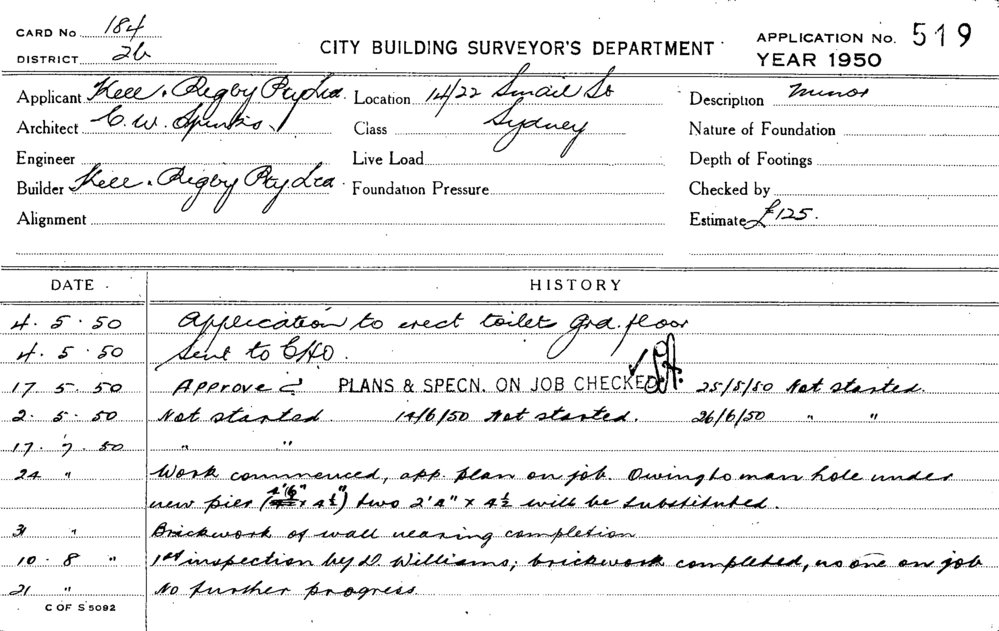 CARD No 184
DISTRICT 2b
CITY BUILDING SURVEYOR'S DEPARTMENT
APPLICATION No. 519
YEAR 1950
Applicant Kell & Rigby Pty Ltd. Location 14/22 Smail St Description Minor
Architect C. W. Spinks. Class Sydney Nature of Foundation
Engineer Live Load Depth of Footings
Builder Kell & Rigby Pty Ltd. Foundation Pressure Checked by
Alignment Estimate £125.
DATE HISTORY
4. 5. 50 Application to erect toilets grd. floor
4. 5. 50 Sent to CHO.
17 5. 50 Approved PLANS & SPECN. ON JOB CHECKED 25/5/50 Not started.
2. 5. 50 Not started. 14/6/50 Not started. 26/6/50 " "
17. 7. 50 " "
24 " Work commenced, app. plan on job. Owing to man hole under
new pier ( x 4½") two 2'4" x 4½ will be substituted.
31 " Brickwork of wall nearing completion
10. 8 " 1st inspection by D. Williams; brickwork completed, no one on job
21 " No further progress.
C OF S 5092